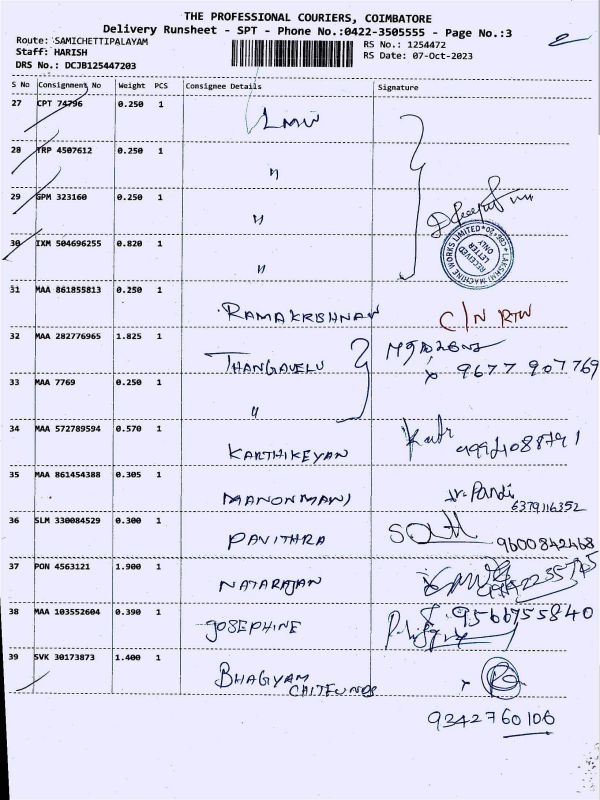 THE PROFESSIONAL COURIERS, COIMBATORE
Delivery Runsheet - SPT - Phone No.:0422-3505555 - Page No.:3
Route: SAMICHETTIPALAYAM
Staff: HARISH
DRS No.: DCJB125447203
RS No.: 1254472
RS Date: 07-Oct-2023
S No Consignment No Weight PCS Consignee Details Signature
27 CPT 74796 0.250 1 LMW
28 TRP 4507612 0.250 1 "
29 GPM 323160 0.250 1 "
30 IXM 504696255 0.820 1 "
LAKSHMI MACHINE WORKS LIMITED
RECEIVED
LETTER
ONLY
31 MAA 861855813 0.250 1 RAMAKRISHNAN C/N RTN
32 MAA 282776965 1.825 1 THANGAVELU 9677 907769
33 MAA 7769 0.250 1 "
34 MAA 572789594 0.570 1 KARTHIKEYAN
35 MAA 861454388 0.305 1 MANONMANI Pandi
6379116352
36 SLM 330084529 0.300 1 PAVITHRA
9600842468
37 PON 4563121 1.900 1 NATARAJAN
38 MAA 103552604 0.390 1 JOSEPHINE 9566755840
39 SVK 30173873 1.400 1 BHAGYAM
CHITFUNDS
9342760106